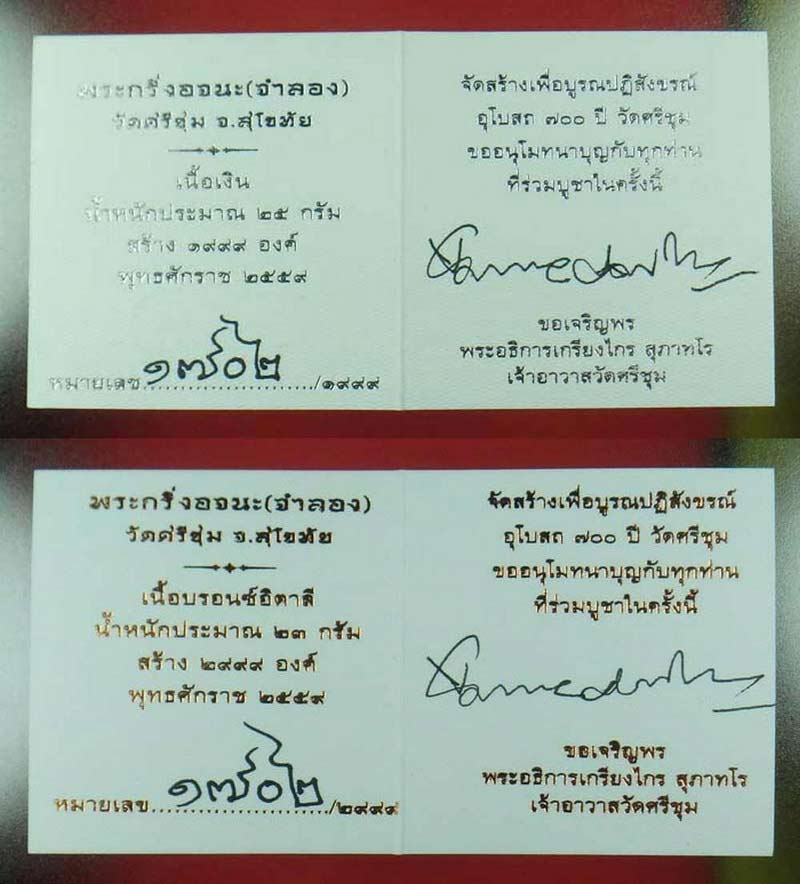 พระกริ่งอจนะ(จำลอง)
วัดศรีชุ่ม จ.สุโขทัย
เนื้อเงิน
น้ำหนักประมาณ ๒๕ กรัม
สร้าง ๑๙๙๙ องค์
พุทธศักราช ๒๕๕๙
หมายเลข ๑๗๐๒ /๑๙๙๙
จัดสร้างเพื่อบูรณปฏิสังขรณ์
อุโบสถ ๗๐๐ ปี วัดศรีชุม
ขออนุโมทนาบุญกับทุกท่าน
ที่ร่วมบูชาในครั้งนี้
ขอเจริญพร
พระอธิการเกรียงไกร สุภาทโร
เจ้าอาวาสวัดศรีชุม
พระกริ่งอจนะ(จำลอง)
วัดศรีชุ่ม จ.สุโขทัย
เนื้อบรอนซ์อิตาลี
น้ำหนักประมาณ ๒๓ กรัม
สร้าง ๒๙๙๙ องค์
พุทธศักราช ๒๕๕๙
หมายเลข ๑๗๐๒ /๒๙๙๙
จัดสร้างเพื่อบูรณปฏิสังขรณ์
อุโบสถ ๗๐๐ ปี วัดศรีชุม
ขออนุโมทนาบุญกับทุกท่าน
ที่ร่วมบูชาในครั้งนี้
ขอเจริญพร
พระอธิการเกรียงไกร สุภาทโร
เจ้าอาวาสวัดศรีชุม